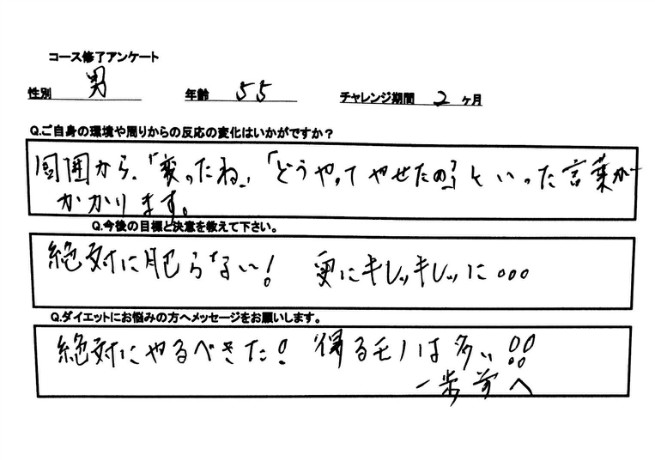 コース修了アンケート
性別 男 年齢 55 チャレンジ期間 2 ヶ月
Q.ご自身の環境や周りからの反応の変化はいかがですか？
周囲から、「変ったね」、「どうやって やせたの」 といった言葉が
かかります。
Q.今後の目標と決意を教えて下さい。
絶対に肥らない! 更にキレッキレッに...
Q.ダイエットにお悩みの方へメッセージをお願いします。
絶対にやるべきだ! 得るモノは多い!!
一歩前へ